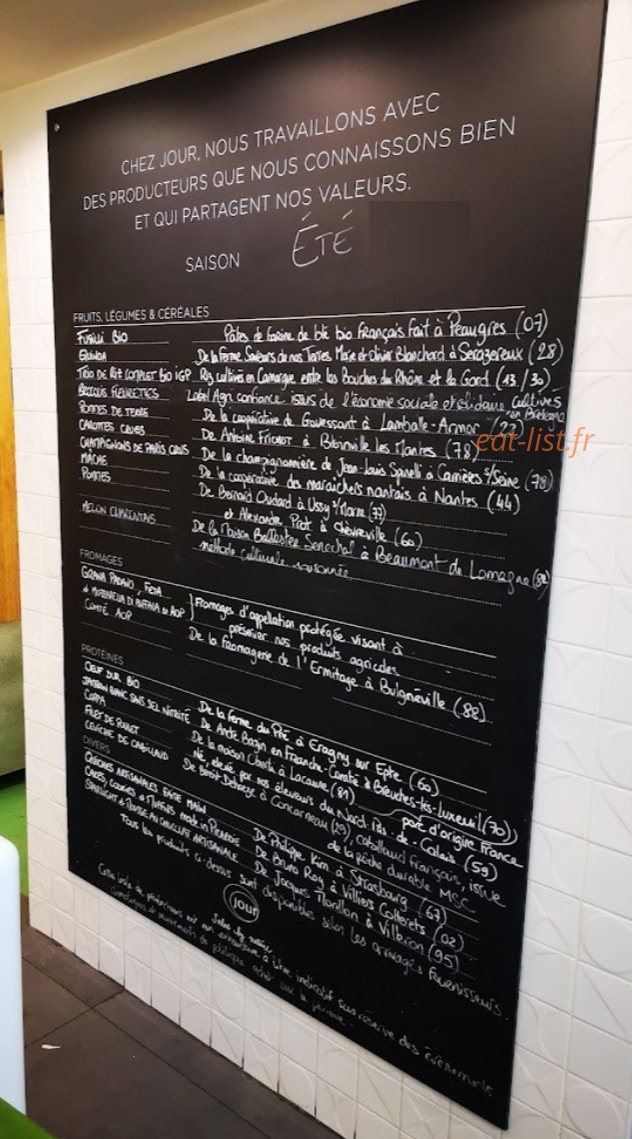 CHEZ JOUR, NOUS TRAVAILLONS AVEC
DES PRODUCTEURS QUE NOUS CONNAISSONS BIEN
ET QUI PARTAGENT NOS VALEURS.
SAISON ÉTÉ
FRUITS, LÉGUMES & CÉRÉALES
FUSILLI BIO Pâtes de farine de blé bio français fait à Peaugres (07)
QUINOA De la Ferme Saveurs de nos Terres Marie et Olivier Blanchard à Serazereux (28)
TRIO DE RIZ COMPLET BIO IGP Riz cultivé en Camargue entre les Bouches du Rhône et le Gard (13/30)
BROCOLIS FLEURETTES Label Agri confiance, issus de l'économie sociale et solidaire cultivés
en Bretagne
POMMES DE TERRE De la coopérative de Gouessant à Lamballe-Armor (22)
CAROTTES CRUES De Antoine Frichot à les Nantes (78)
eat-list.fr
CHAMPIGNONS DE PARIS CRUS De la champignonnière de Jean-Louis Spinelli à Carrières s/Seine (78)
MÂCHE De la coopérative des maraîchers nantais à Nantes (44)
POMMES De Bernard Oudard à Ussy s/Marne (77)
et Alexandre Prot à Chèvreville (60)
MELON CHARENTAIS De la Maison Ballestre Senechal à Beaumont de Lomagne (82)
méthode culturale raisonnée
FROMAGES
GRANA PADANO, FETA
& MOZZARELLA DI BUFFALA DI AOP } Fromages d'appellation protégée visant à
préserver nos produits agricoles
COMTÉ AOP De la fromagerie de l'Ermitage à Bulgnéville (88)
PROTÉINES
OEUF DUR BIO De la ferme du Pré à Eragny sur Epte (60)
JAMBON BLANC SANS SEL NITRITÉ De André Bazin en Franche-Comté à Breuches-lès-Luxeuil (70)
COPPA De la maison Oberti à Lacaune (81) porc d'origine France
FILET DE POULET Né, élevé par nos éleveurs du Nord-Pas-de-Calais (59)
CEVICHE DE CABILLAUD De Benoit Delnaye à Concarneau (29) cabillaud français, issue
de la pêche durable MSC
DIVERS
QUICHES ARTISANALES FAITE MAIN De Philippe Kim à Strasbourg (67)
CAKES, COOKIES & MUFFINS made in PICARDIE De Bruno Roy à Villiers Cotterets (02)
& MOUSSE AU CHOCOLAT ARTISANALE De Jacques Thorillon à Villeron (95)
Tous les produits ci-dessus sont disponibles selon les arrivages fournisseurs.
jour
Cette liste de producteurs est non exhaustive à titre indicatif sous réserve des évènements
climatiques et mouvements de politique achat sur la période.